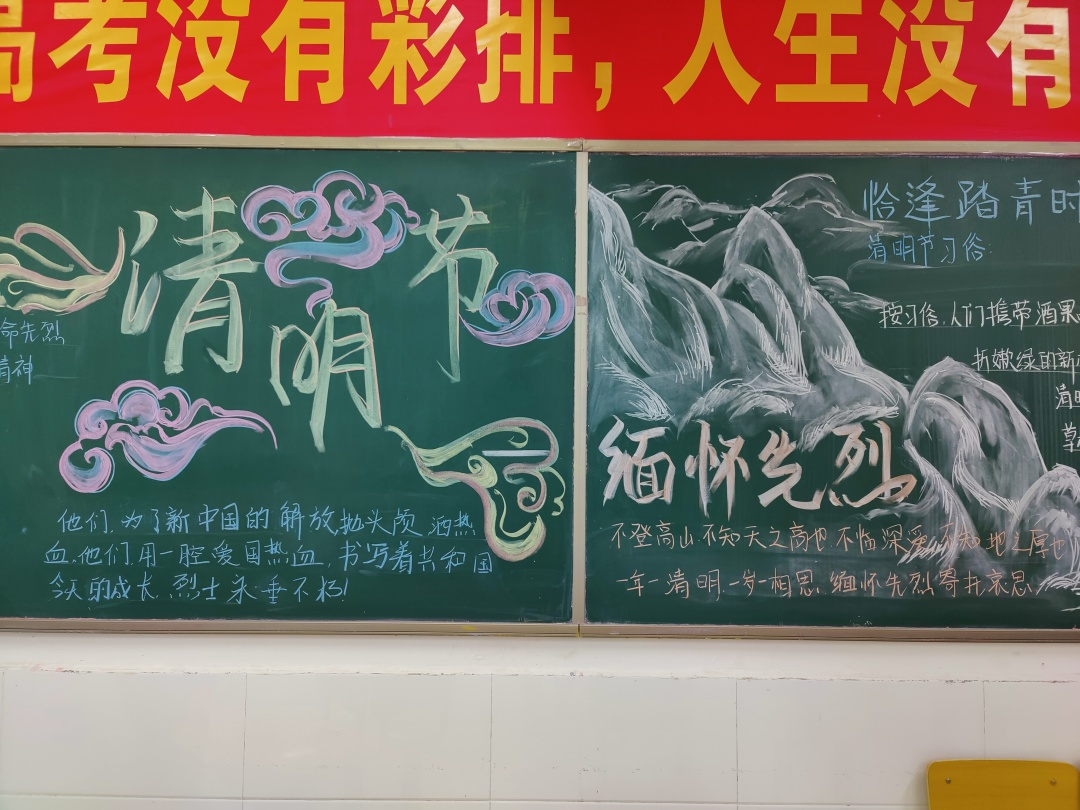 高考没有彩排，人生没有
清明节
命先烈
精神
他们，为了新中国的解放抛头颅洒热
血，他们用一腔爱国热血，书写着共和国
今天的成长，烈士永垂不朽！
恰逢踏青时
清明节习俗：
按习俗，人们携带酒果
折嫩绿的新
清明
缅怀先烈
不登高山，不知天之高也，不临深溪，不知地之厚也
一年一清明，一岁一相思，缅怀先烈寄托哀思